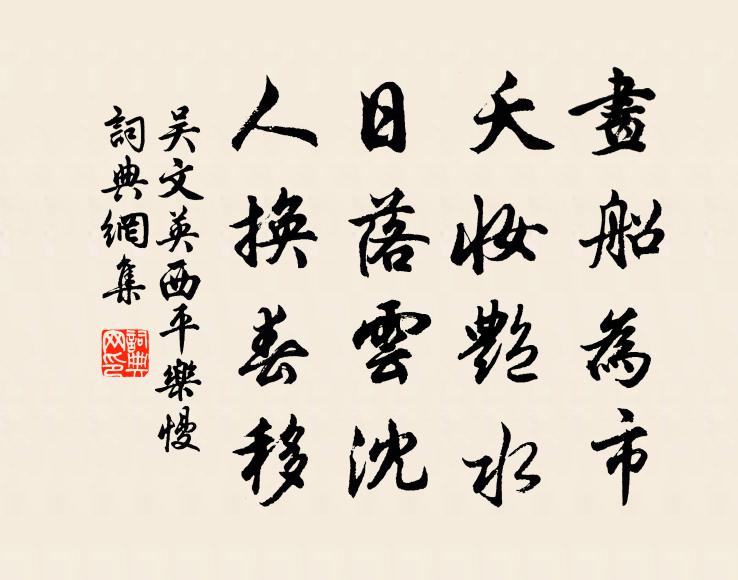 畫船為市
夭妝艷水
日落雲沈
人換春移
吳文英西平樂慢
詞典網集
詞典網印